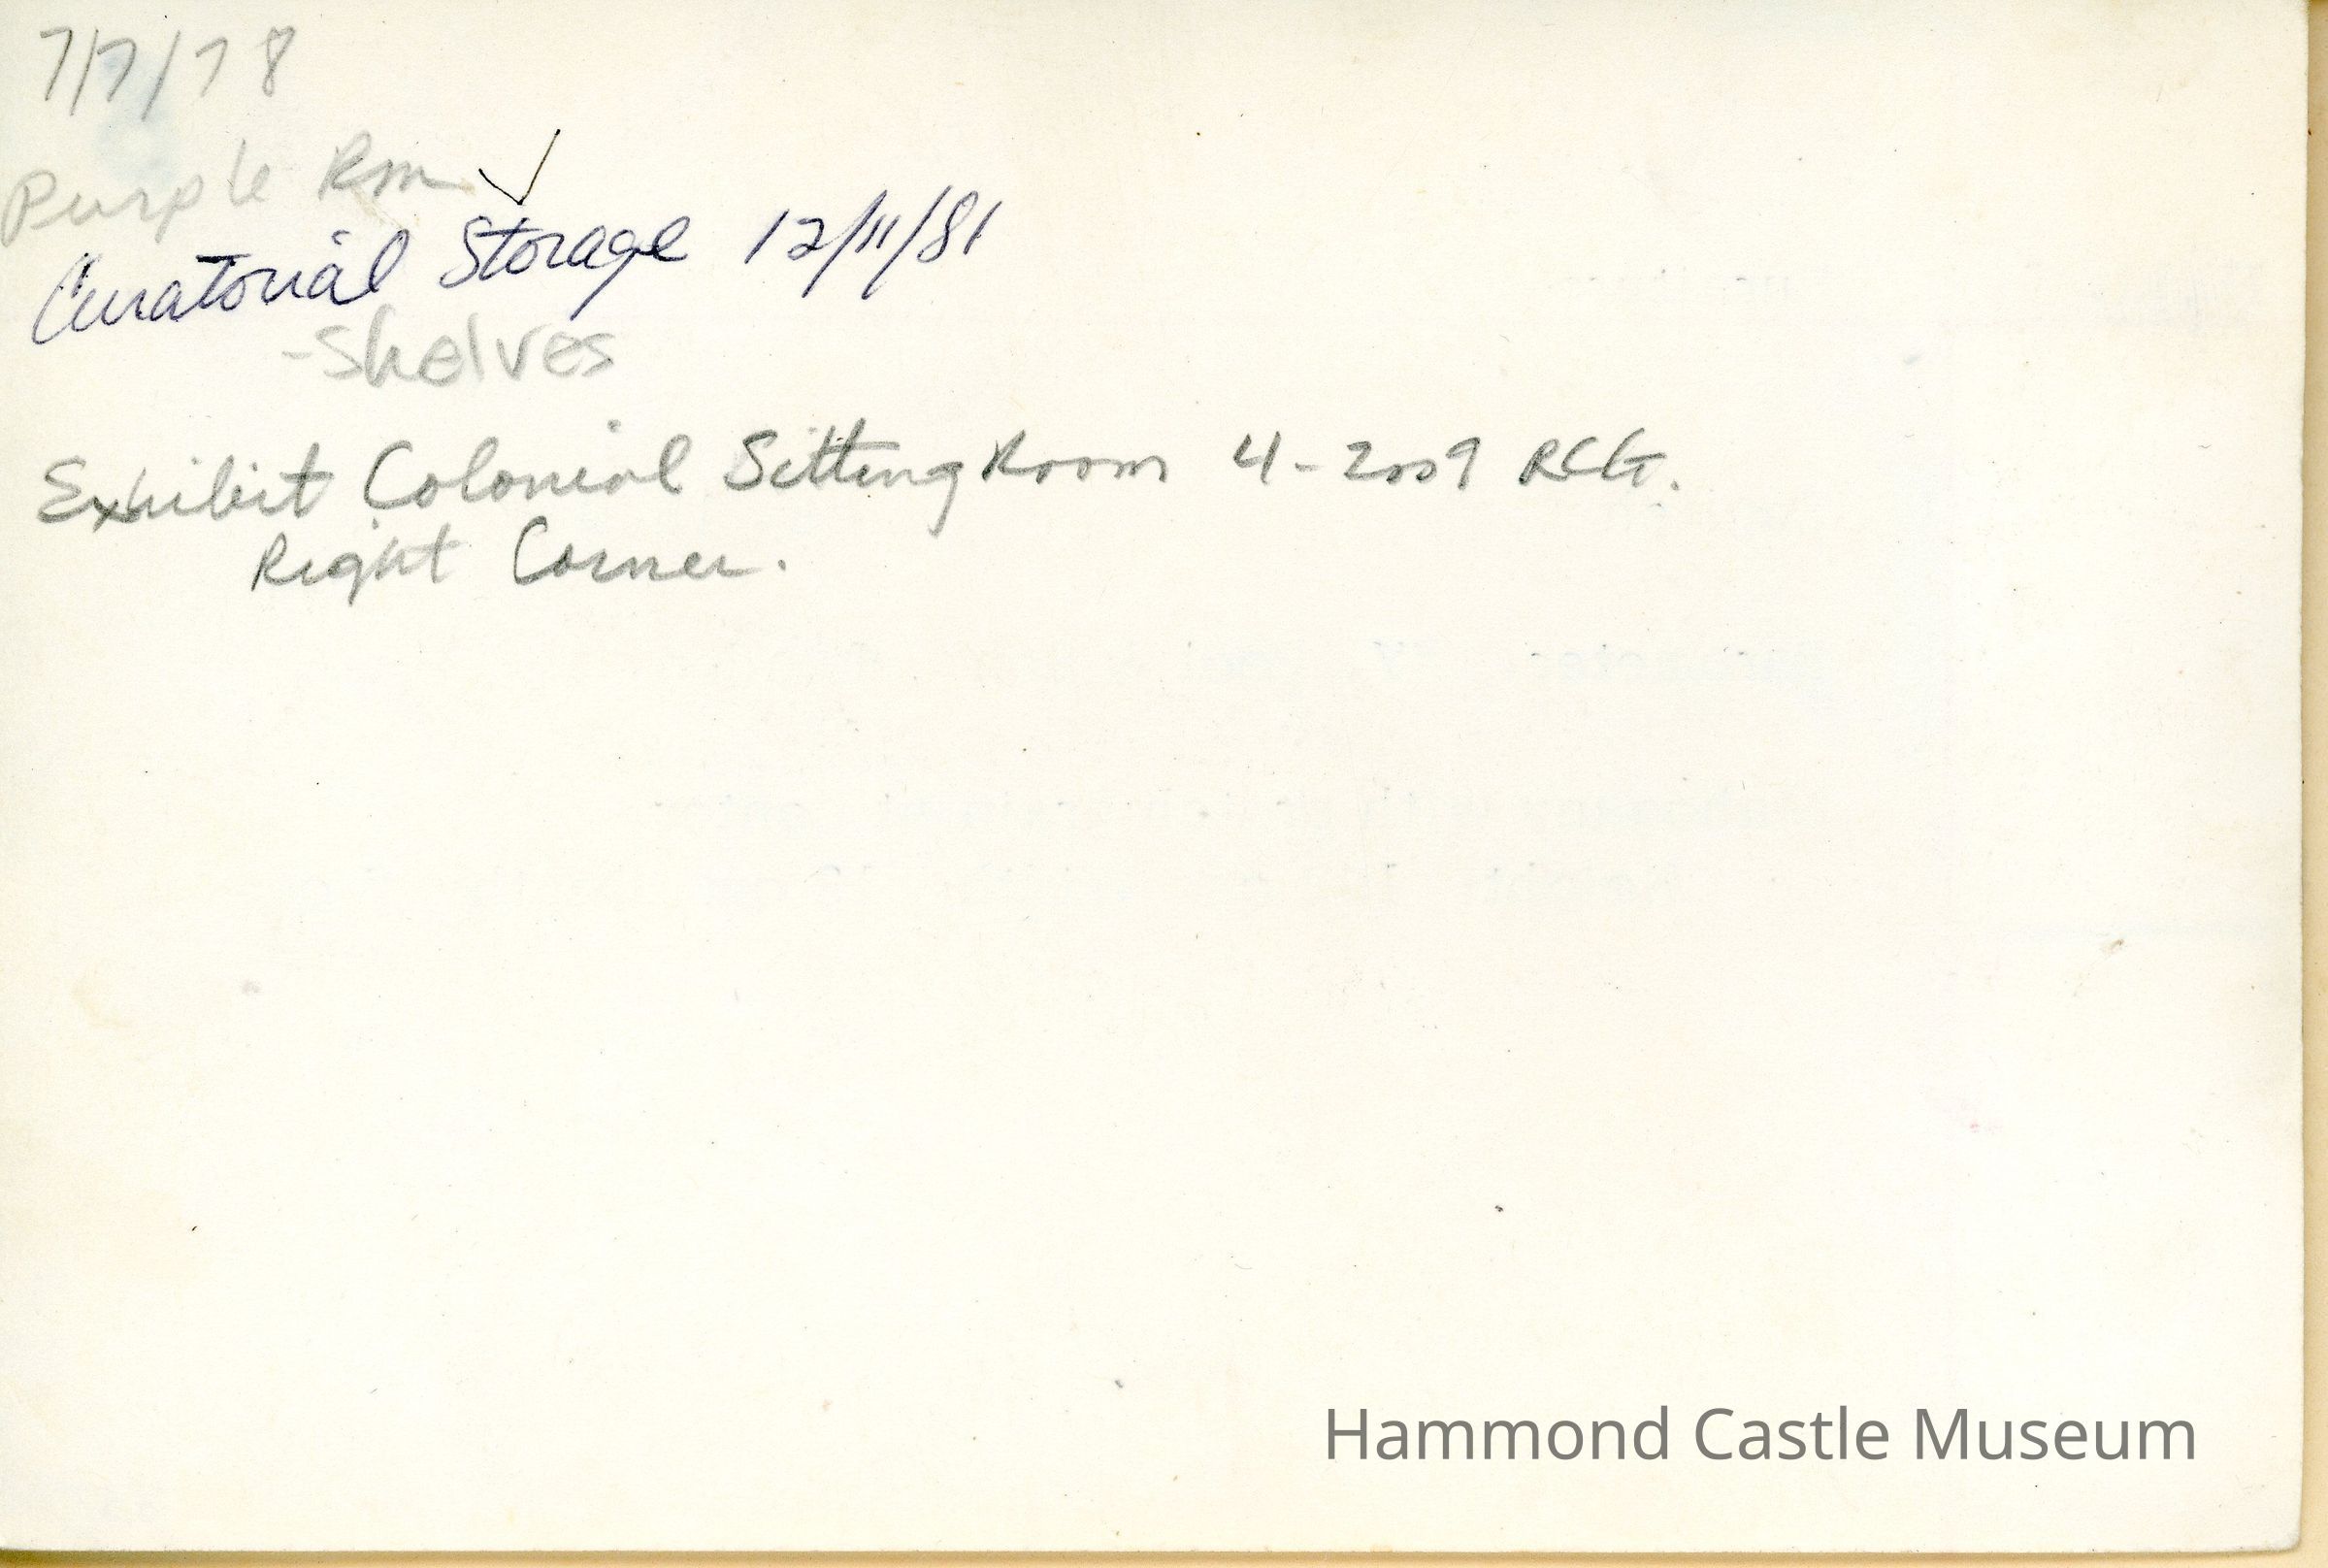 7/7/78
Purple Rm ✓
Curatorial Storage 12/11/81
-Shelves
Exhibit Colonial Sitting Room 4-2009 RCG.
Right Corner.
Hammond Castle Museum